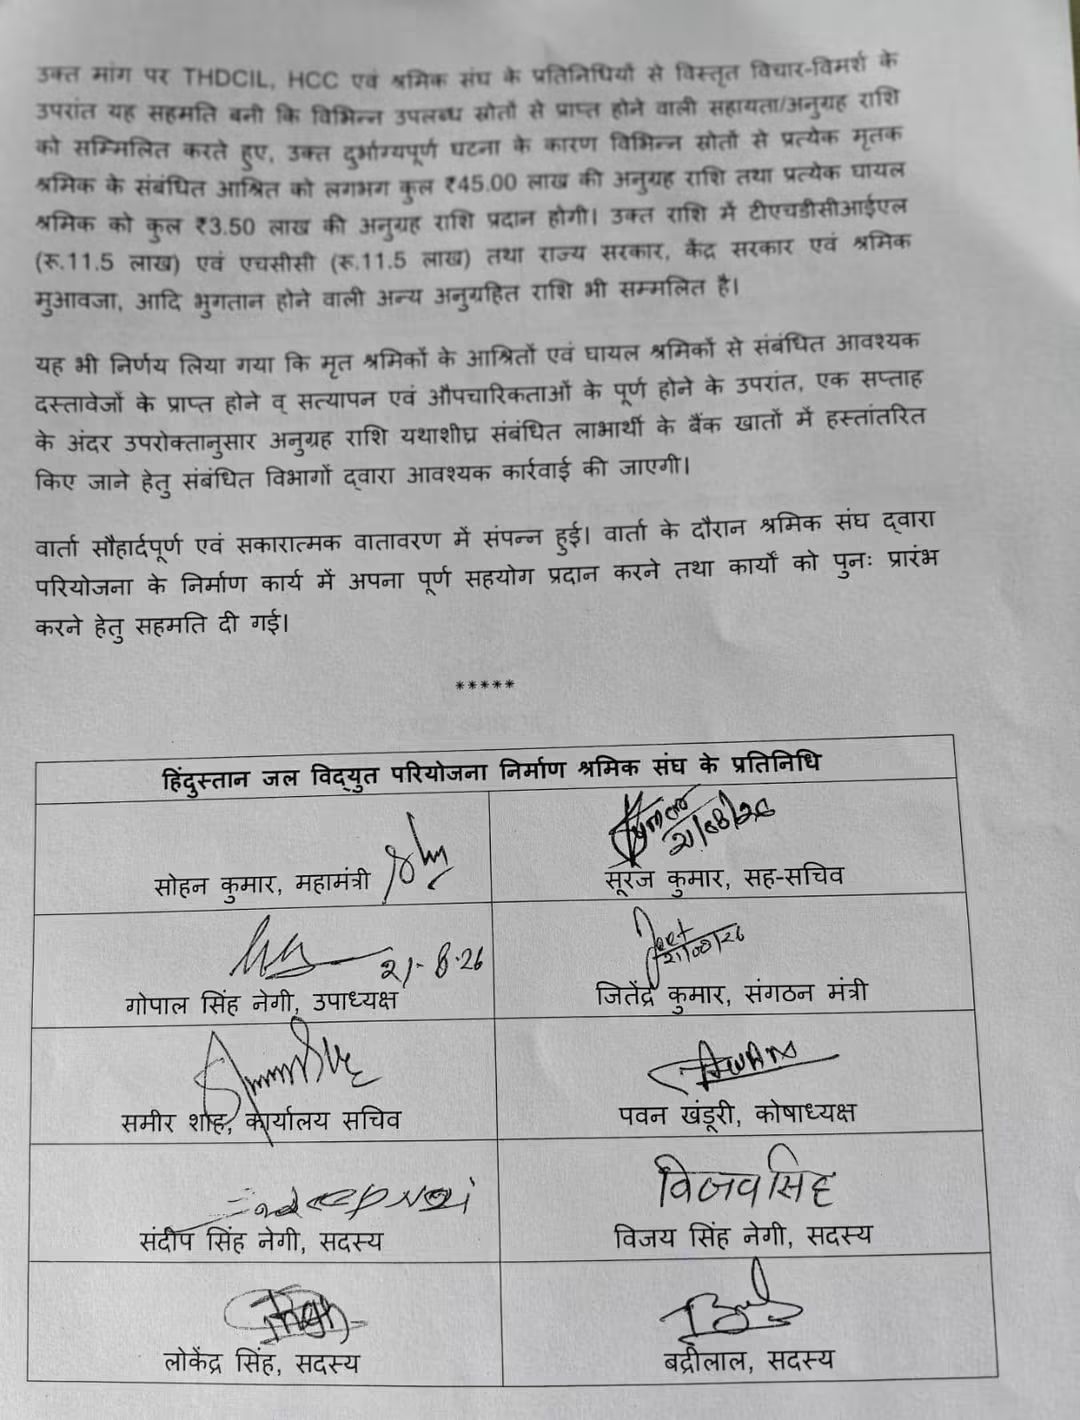 उक्त मांग पर THDCIL, HCC एवं श्रमिक संघ के प्रतिनिधियों से विस्तृत विचार-विमर्श के
उपरांत यह सहमति बनी कि विभिन्न उपलब्ध स्रोतों से प्राप्त होने वाली सहायता/अनुग्रह राशि
को सम्मिलित करते हुए, उक्त दुर्भाग्यपूर्ण घटना के कारण विभिन्न स्रोतों से प्रत्येक मृतक
श्रमिक के संबंधित आश्रित को लगभग कुल ₹45.00 लाख की अनुग्रह राशि तथा प्रत्येक घायल
श्रमिक को कुल ₹3.50 लाख की अनुग्रह राशि प्रदान होगी। उक्त राशि में टीएचडीसीआईएल
(रू.11.5 लाख) एवं एचसीसी (रू.11.5 लाख) तथा राज्य सरकार, केंद्र सरकार एवं श्रमिक
मुआवजा, आदि भुगतान होने वाली अन्य अनुग्रहित राशि भी सम्मलित है।
यह भी निर्णय लिया गया कि मृत श्रमिकों के आश्रितों एवं घायल श्रमिकों से संबंधित आवश्यक
दस्तावेजों के प्राप्त होने व् सत्यापन एवं औपचारिकताओं के पूर्ण होने के उपरांत, एक सप्ताह
के अंदर उपरोक्तानुसार अनुग्रह राशि यथाशीघ्र संबंधित लाभार्थी के बैंक खातों में हस्तांतरित
किए जाने हेतु संबंधित विभागों द्वारा आवश्यक कार्रवाई की जाएगी।
वार्ता सौहार्दपूर्ण एवं सकारात्मक वातावरण में संपन्न हुई। वार्ता के दौरान श्रमिक संघ द्वारा
परियोजना के निर्माण कार्य में अपना पूर्ण सहयोग प्रदान करने तथा कार्यों को पुनः प्रारंभ
करने हेतु सहमति दी गई।
*****
हिंदुस्तान जल विद्युत परियोजना निर्माण श्रमिक संघ के प्रतिनिधि
21/08/26
सोहन कुमार, महामंत्री
सूरज कुमार, सह-सचिव
21-8-26
21/08/26
गोपाल सिंह नेगी, उपाध्यक्ष
जितेंद्र कुमार, संगठन मंत्री
समीर शाह, कार्यालय सचिव
पवन खंडूरी, कोषाध्यक्ष
विजय सिंह
संदीप सिंह नेगी, सदस्य
विजय सिंह नेगी, सदस्य
लोकेंद्र सिंह, सदस्य
बद्रीलाल, सदस्य